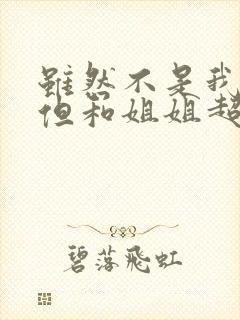 雖然不是我
但和姐姐超
碧落飛虹